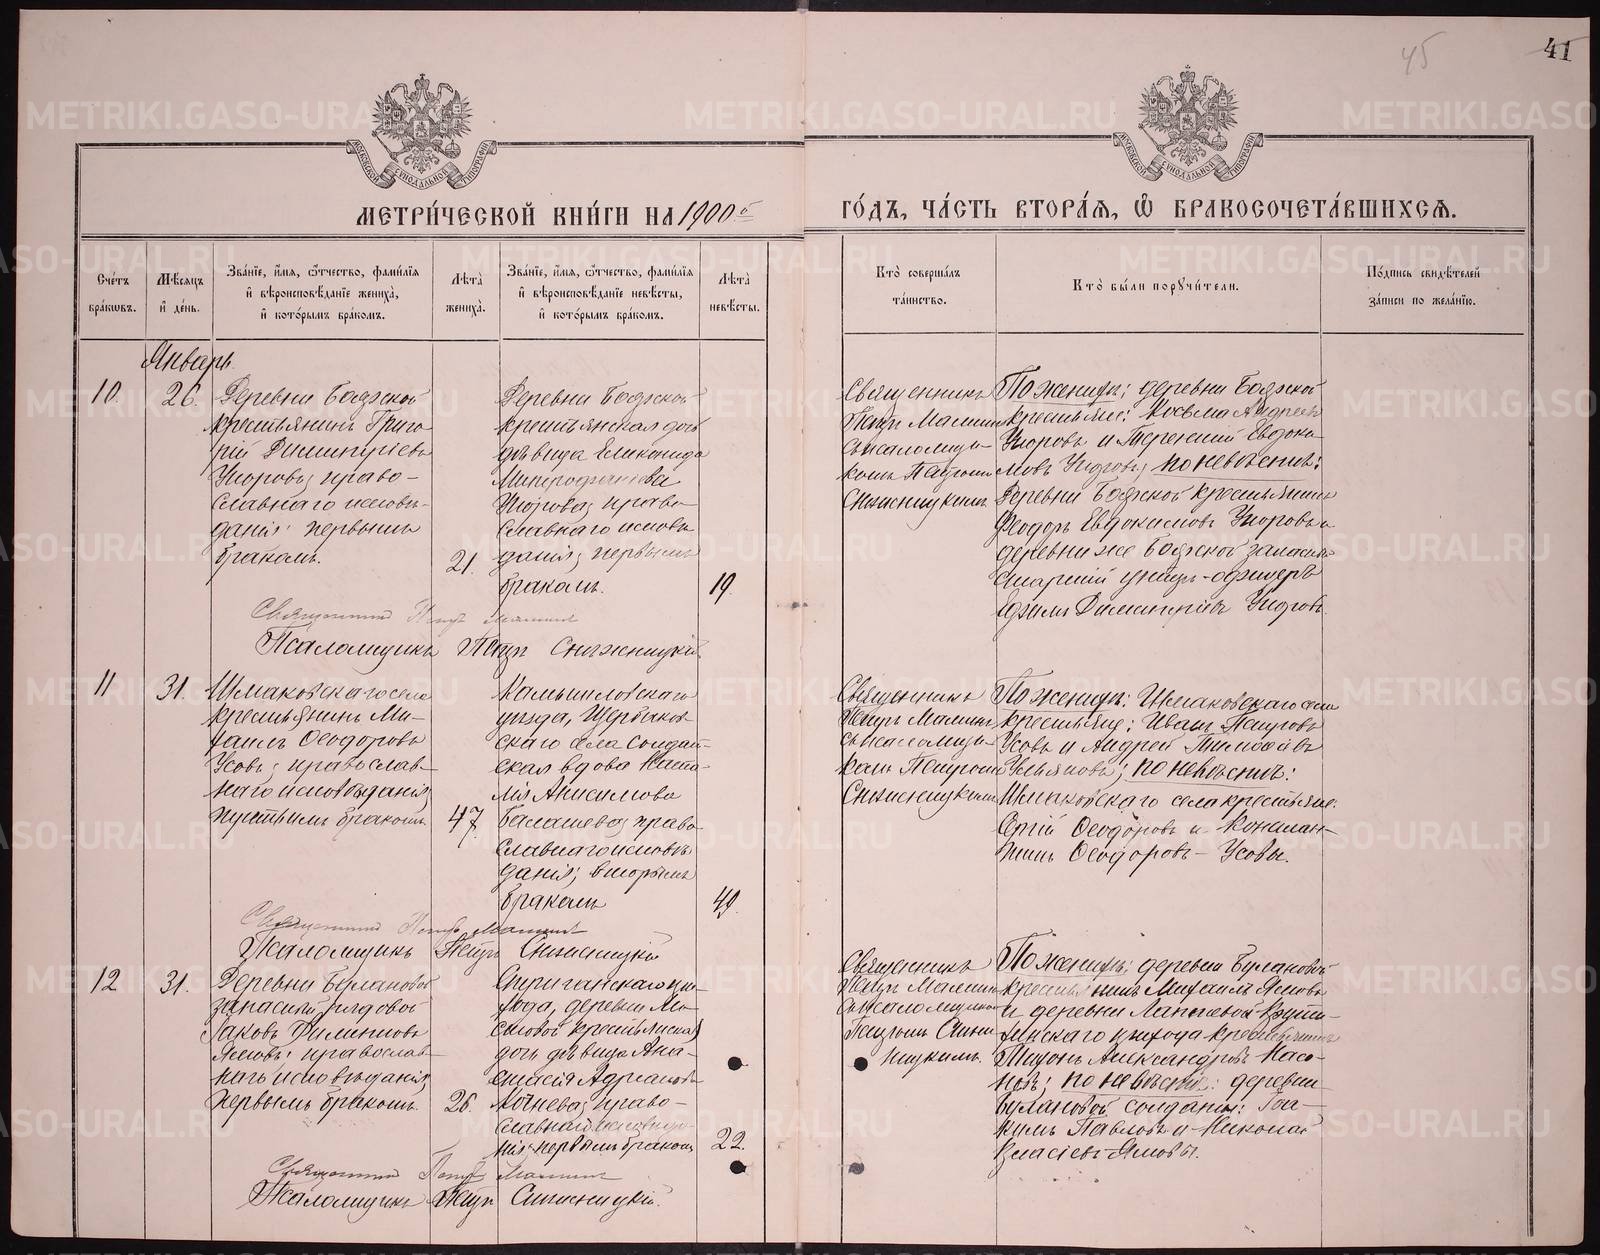 45
41
МОСКОВСКОЙ СѴНОДАЛЬНОЙ ТИПОГРАФІИ
МОСКОВСКОЙ СѴНОДАЛЬНОЙ ТИПОГРАФІИ
МЕТРИ́ЧЕСКОЙ КНИ́ГИ НА 1900й
ГО́ДЪ, ЧА́СТЬ ВТОРА́Ѧ, Ѽ БРАКОСОЧЕТА́ВШИХСѦ.
Сче́тъ бра́кѡвъ.
Мѣ́сяцъ и҆ де́нь.
Зва́нїе, и҆́мя, ѻ҆́тчество, фами́лїя
и҆ вѣроисповѣ́данїе жениха̀,
и҆ кото́рымъ бра́комъ.
Лѣ̀та жениха̀.
Зва́нїе, и҆́мя, ѻ҆́тчество, фами́лїя
и҆ вѣроисповѣ́данїе невѣ́сты,
и҆ кото́рымъ бра́комъ.
Лѣ̀та невѣ́сты.
Кто̀ соверша́лъ та́инство.
Кто̀ бы́ли порꙋчи́тели.
По́дпись свидѣ́телей за́писи по жела́нїю.
Январь
10.
26.
Деревни Боярской
крестьянинъ Григо-
рій Димитріевъ
Упоровъ; право-
славнаго исповѣ-
данія; первымъ
бракомъ.
21.
Деревни Боярской
крестьянская дочь
дѣвица Еликонида
Митрофанова
Упорова; право-
славнаго исповѣ-
данія; первымъ
бракомъ.
19.
Священникъ
Петръ Маминъ
съ псаломщи-
комъ Петромъ
Снѣжницкимъ.
По женихѣ: деревни Боярской
крестьяне: Косьма Андреевъ
Упоровъ и Терентій Евдоки-
мовъ Упоровъ; по невѣстѣ:
Деревни Боярской крестьянинъ
Ѳеодоръ Евдокимовъ Упоровъ и
деревни же Боярской запасный
старшій унтеръ-офицеръ
Ефимъ Димитріевъ Упоровъ.
Священникъ Петръ Маминъ
Псаломщикъ Петръ Снѣжницкій.
11
31.
Шмаковскаго села
крестьянинъ Ми-
хаилъ Ѳеодоровъ
Усовъ; православ-
наго исповѣданія;
третьимъ бракомъ.
47.
Камышловскаго
уѣзда, Щербаков-
скаго села солдат-
ская вдова
Анисимова
Балашева; право-
славнаго исповѣ-
данія; вторымъ
бракомъ
49.
Священникъ
Петръ Маминъ
съ псаломщи-
комъ Петромъ
Снѣжницкимъ
По женихѣ: Шмаковскаго села
крестьяне: Иванъ Петровъ
Усовъ и Андрей Тимофеевъ
Ульяновъ; по невѣстѣ:
Шмаковскаго села крестьяне:
Сергій Ѳеодоровъ и Констан-
тинъ Ѳеодоровъ - Усовы.
Священникъ Петръ Маминъ
Псаломщикъ Петръ Снѣжницкій
12
31.
Деревни Булановой
запасный рядовой
Іаковъ
Ямовъ; православ-
наго исповѣданія;
первымъ бракомъ.
26.
при-
хода, деревни
крестьянская
дочь дѣвица Ана-
стасія Адріанова
право-
славнаго исповѣда-
нія; первымъ бракомъ
22.
Священникъ
Петръ Маминъ
съ псаломщикомъ
Петромъ Снѣж-
ницкимъ.
По женихѣ: деревни Булановой
крестьянинъ Михаилъ Ямовъ
и деревни
прихода крестьянинъ
Тихонъ Александровъ
по невѣстѣ: деревни
Булановой солдаты: Іоа-
кимъ Павловъ и Николай
Власіевъ - Ямовы.
Священникъ Петръ Маминъ
Псаломщикъ Петръ Снѣжницкій.
METRIKI.GASO-URAL.RU